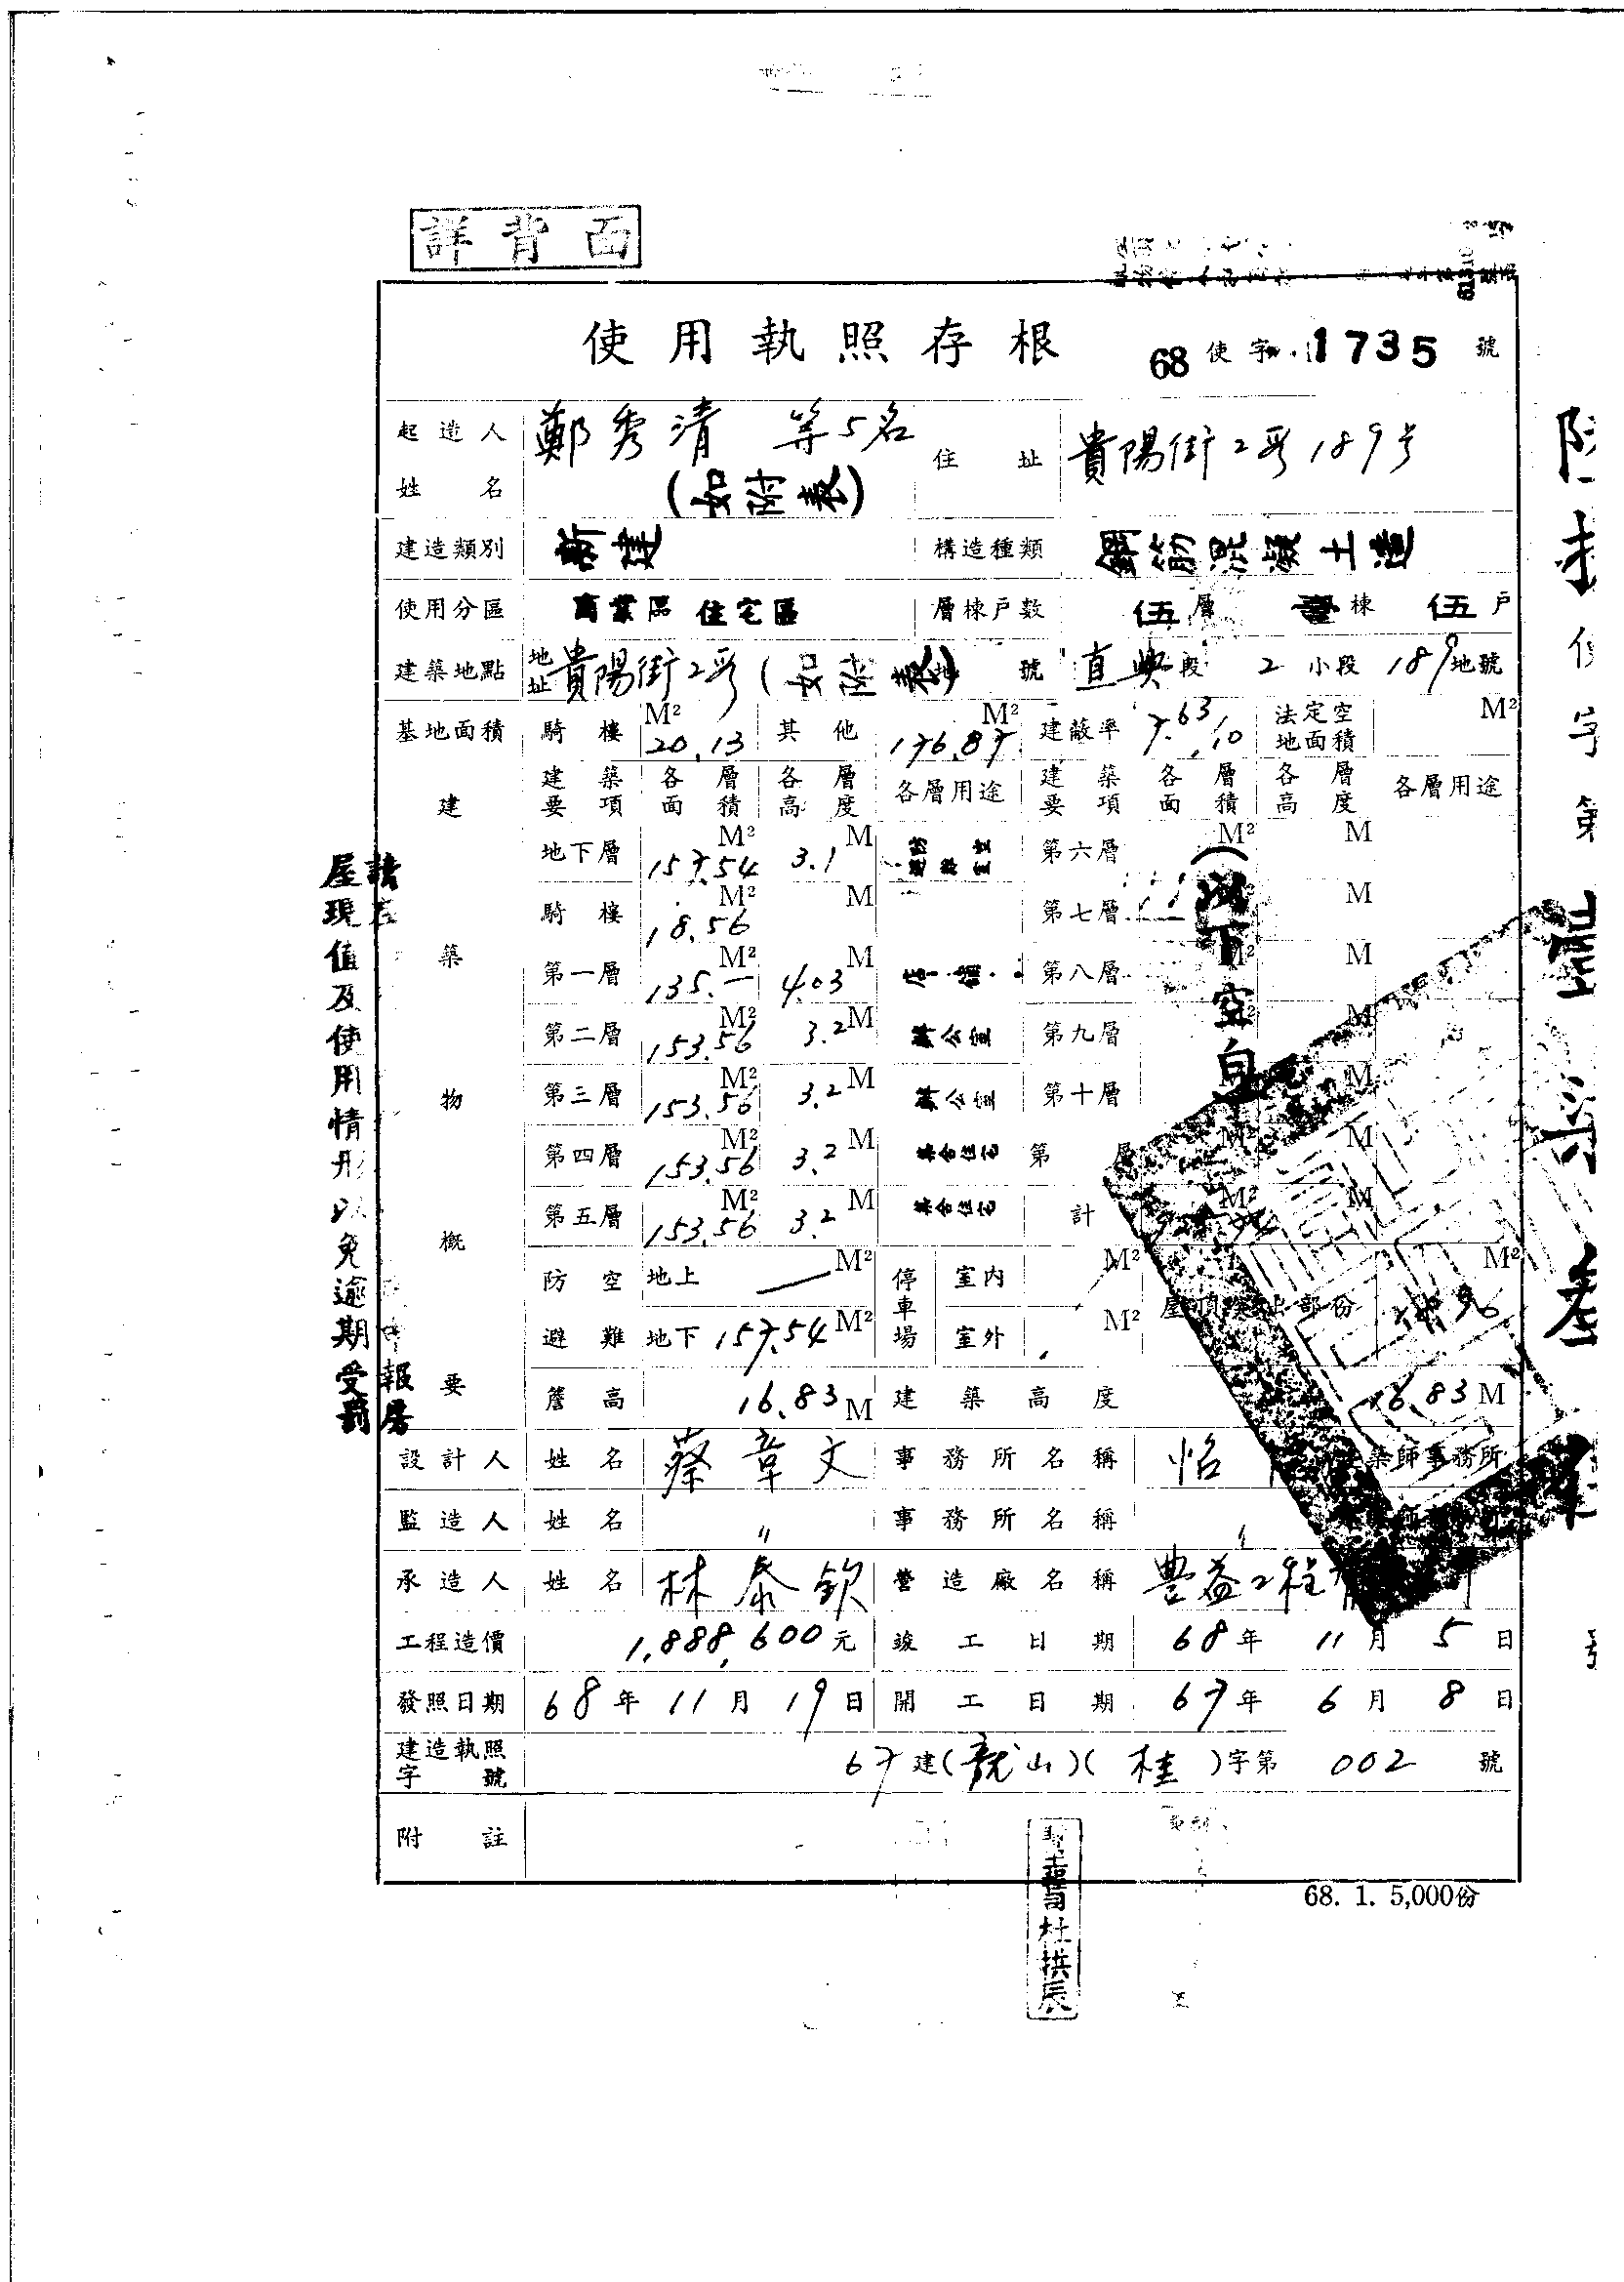 詳背面
使用執照存根 68 使字 1735 號
起造人姓名 鄭秀清 等5名 (如附表) 住址 貴陽街2段189号
建造類別 新建 構造種類 鋼筋混凝土造
使用分區 商業區 住宅區 層棟戶數 伍層 壹棟 伍戶
建築地點 地址 貴陽街2段(如附表) 地號 直興段 2小段 189地號
基地面積 騎樓 M² 20.13 其他 M² 176.87 建蔽率 7.63/10 法定空地面積 M²
建築物概要
建築要項 各層面積 各層高度 各層用途 建築要項 各層面積 各層高度 各層用途
地下層 157.54 M² 3.1 M 第六層 M² M
騎樓 18.56 M² M 第七層 M
第一層 135.一 M² 4.03 M 店舖 第八層 M² M
第二層 153.56 M² 3.2 M 辦公室 第九層 M
第三層 153.56 M² 3.2 M 辦公室 第十層 M
第四層 153.56 M² 3.2 M 集合住宅 第 層 M² M
第五層 153.56 M² 3.2 M 集合住宅 計 M² M
(以下空白
防空避難 地上 — M² 停車場 室內 M² 屋頂突出部份 M²
地下 157.54 M² 室外 M²
簷高 16.83 M 建築高度 16.83 M
設計人 姓名 蔡章文 事務所名稱 怡 築師事務所
監造人 姓名 〃 事務所名稱 〃
承造人 姓名 林泰欽 營造廠名稱 豊益工程
工程造價 1,888,600元 竣工日期 68年 11月 5日
發照日期 68年 11月 19日 開工日期 67年 6月 8日
建造執照字號 67建(龍山)(桂)字第 002 號
附註
68. 1. 5,000份
屋現值及使用情形以免逾期受罰
請 報房
使字第 號
書杜拱辰